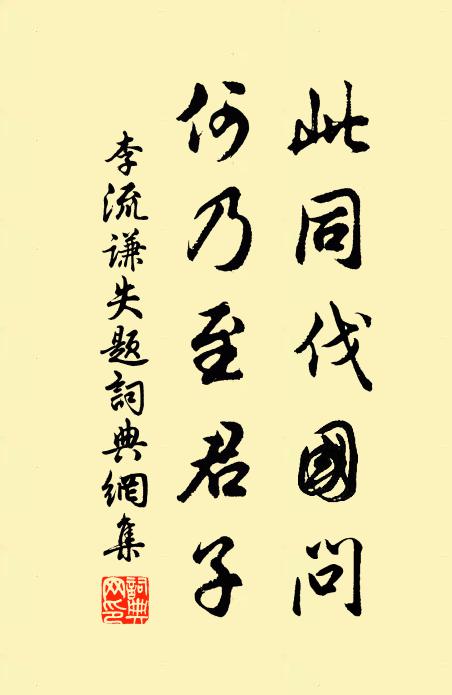 此同伐國問
何乃至君子
李流谦失题詞典網集
詞典網印